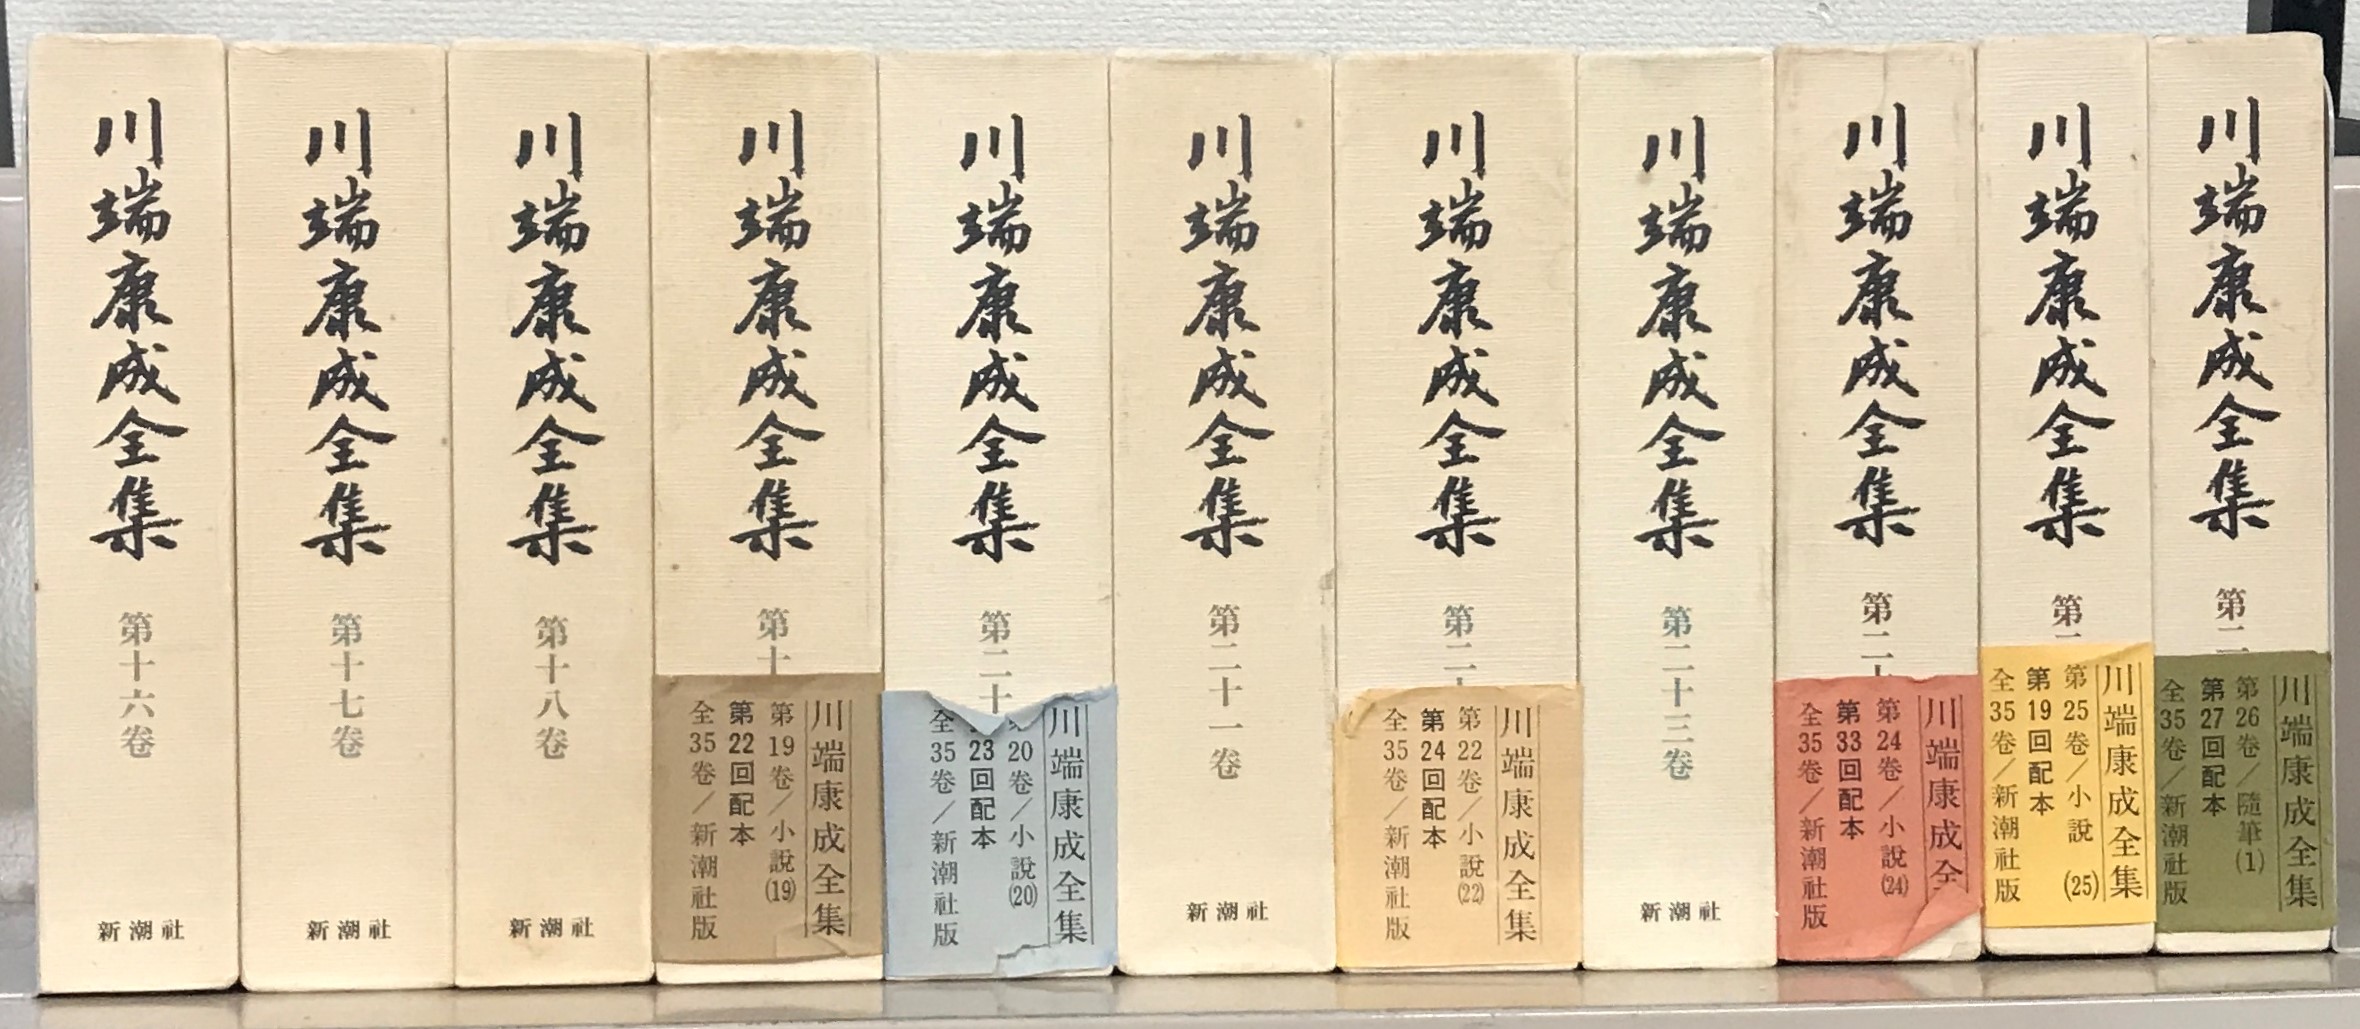 川端康成全集
第十六巻
新潮社
川端康成全集
第十七巻
新潮社
川端康成全集
第十八巻
新潮社
川端康成全集
第十
川端康成全集
第19巻/小説(19)
第22回配本
全35巻/新潮社版
川端康成全集
第二十
川端康成全集
20巻/小説(20)
23回配本
全35巻/新潮社版
川端康成全集
第二十一巻
新潮社
川端康成全集
第二
川端康成全集
第22巻/小説(22)
第24回配本
全35巻/新潮社版
川端康成全集
第二十三巻
新潮社
川端康成全集
第二十
川端康成全
第24巻/小説(24)
第33回配本
全35巻/新潮社版
川端康成全集
第
川端康成全集
第25巻/小説(25)
第19回配本
全35巻/新潮社版
川端康成全集
第二
川端康成全集
第26巻/隨筆(1)
第27回配本
全35巻/新潮社版